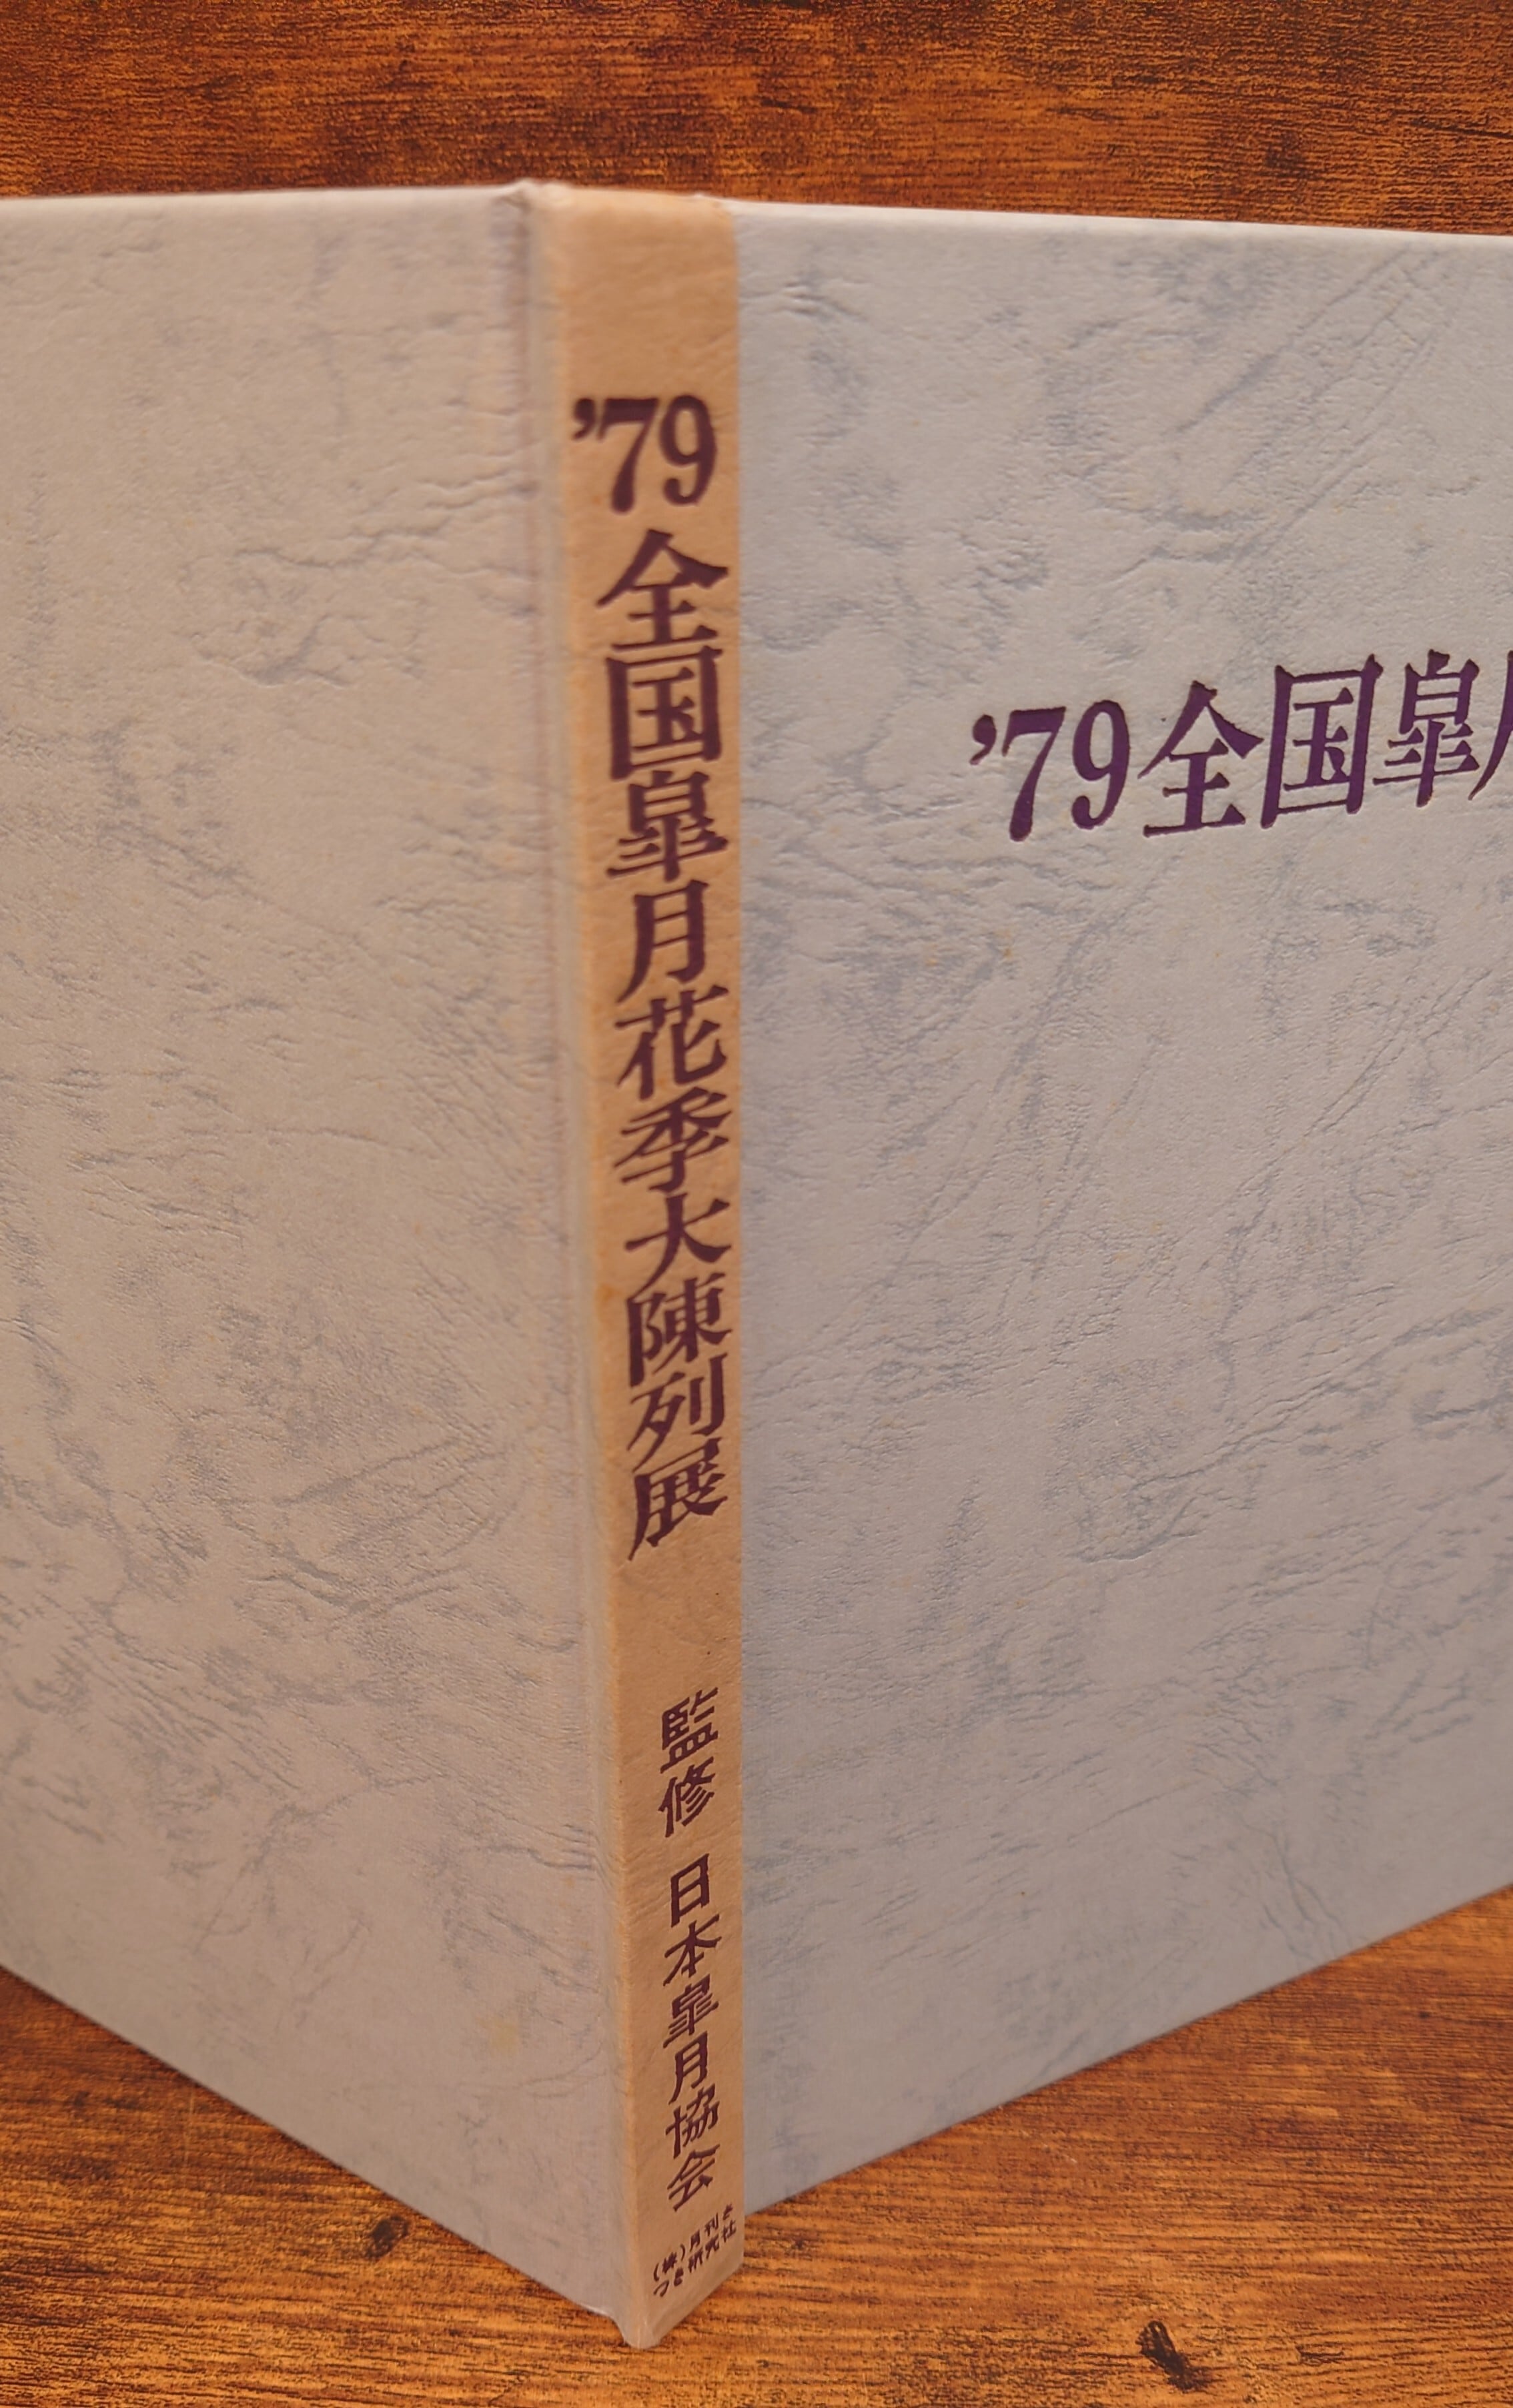 ’79
全国皐月花季大陳列展
監修 日本皐月協会
(株)月刊さ
つき研究社
’79全国皐月